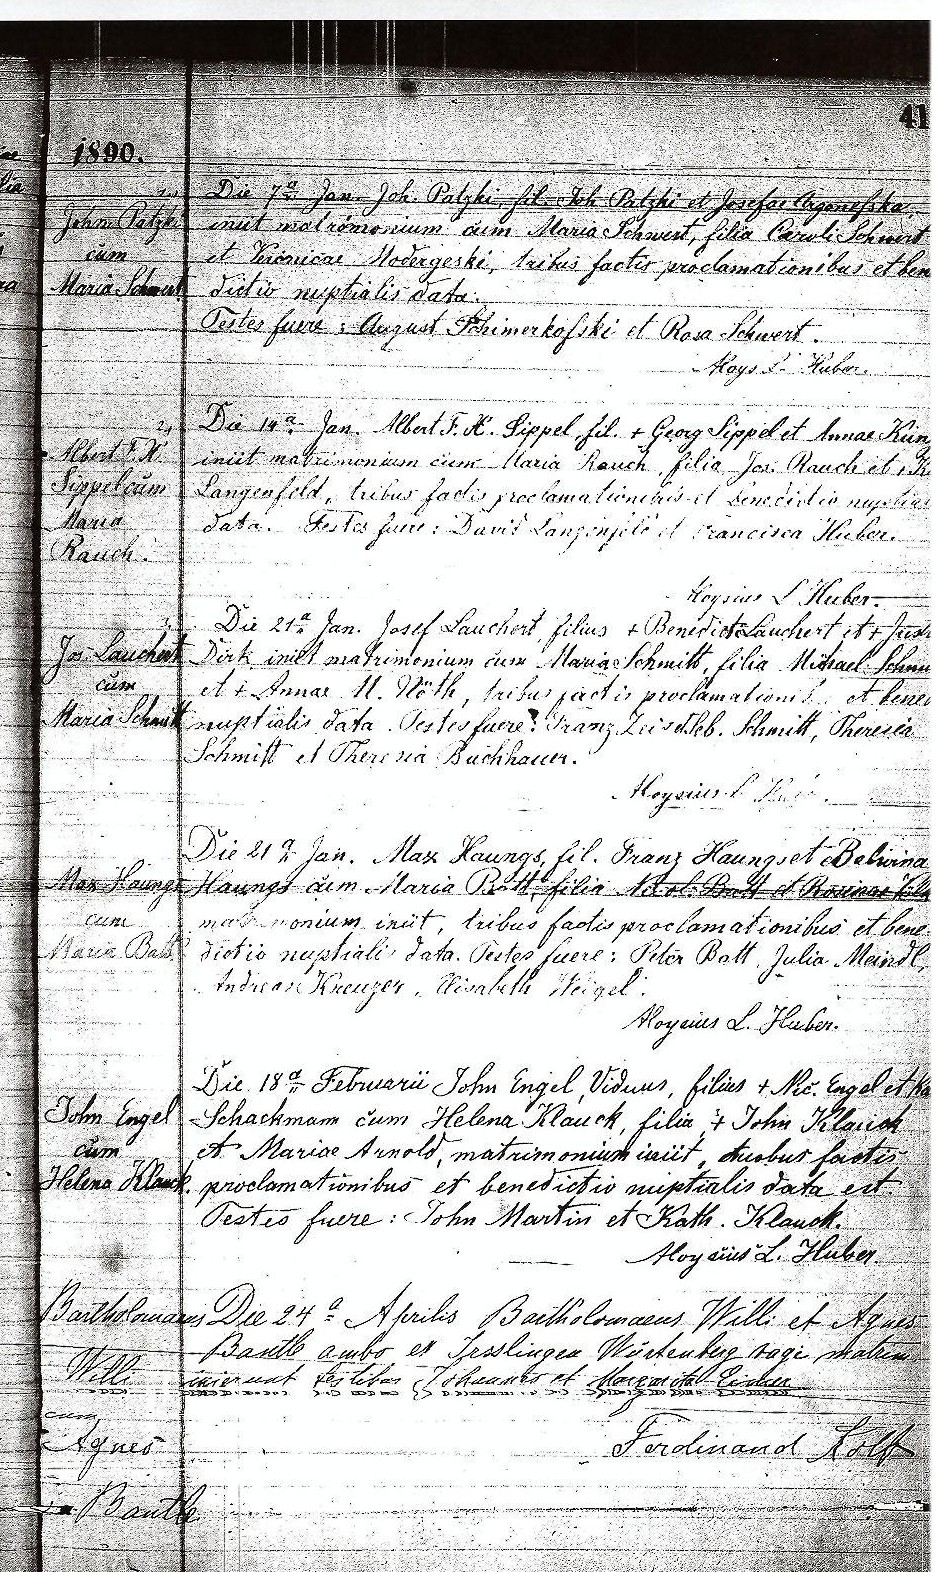 41
1890.
John Patzki
cum
Maria Schwert
Die 7a Jan. Joh. Patzki, fil. Joh Patzki et Josefae
iniit matrimonium cum Maria Schwert, filia Caroli Schwert
et Veronicae Modergeski, tribus factis proclamationibus et ben
dictio nuptialis data.
Testes fuere: August Schimerkofski et Rosa Schwert.
Aloys L. Huber.
Albert F. X.
Sippel cum
Maria
Rauch.
Die 14a Jan. Albert F. X. Sippel, fil. + Georg Sippel et Annae
iniit matrimonium cum Maria Rauch, filia Jos. Rauch et +
Langenfeld, tribus factis proclamationibus et benedictio nuptialis
data. Testes fuere: David Langenfeld et Francisca Huber.
Aloysius L. Huber.
Jos. Lauchert
cum
Maria Schmitt
Die 21a Jan. Josef Lauchert, filius + Benedict Lauchert et +
Dirk iniit matrimonium cum Maria Schmitt, filia Michael
et + Annae M. Nöth, tribus factis proclamationi et bene
nuptialis data. Testes fuere: Franz Zeis et Seb. Schmitt, Theresia
Schmitt et Theresia Buchhauer.
Aloysius L.
Max Haungs
cum
Maria Batt
Die 21a Jan. Max Haungs, fil. Franz Haungs et
Haungs cum Maria Batt, filia Nicol. Batt et Rosinae
matrimonium iniit, tribus factis proclamationibus et bene
dictio nuptialis data. Testes fuere: Peter Batt, Julia Meindl,
Andreas Kreuzer, Elisabeth Weigel.
Aloysius L. Huber.
John Engel
cum
Helena Klauck.
Die 18a Februarii John Engel, Viduus, filius + Nic. Engel et Ka
Schackmam cum Helena Klauck, filia + John Klauck
et Mariae Arnold, matrimonium iniit, duobus factis
proclamationibus et benedictio nuptialis data est.
Testes fuere: John Martin et Kath. Klauck.
Aloysius L. Huber.
Bartholomaeus
Willi
cum
Agnes
Bantle
Die 24a Aprilis Bartholomaeus Willi et Agnes
Bantle ambo ex Irsslingen Würtenberg matrim
inierunt testibus Johannes et
Ferdinand Kolb